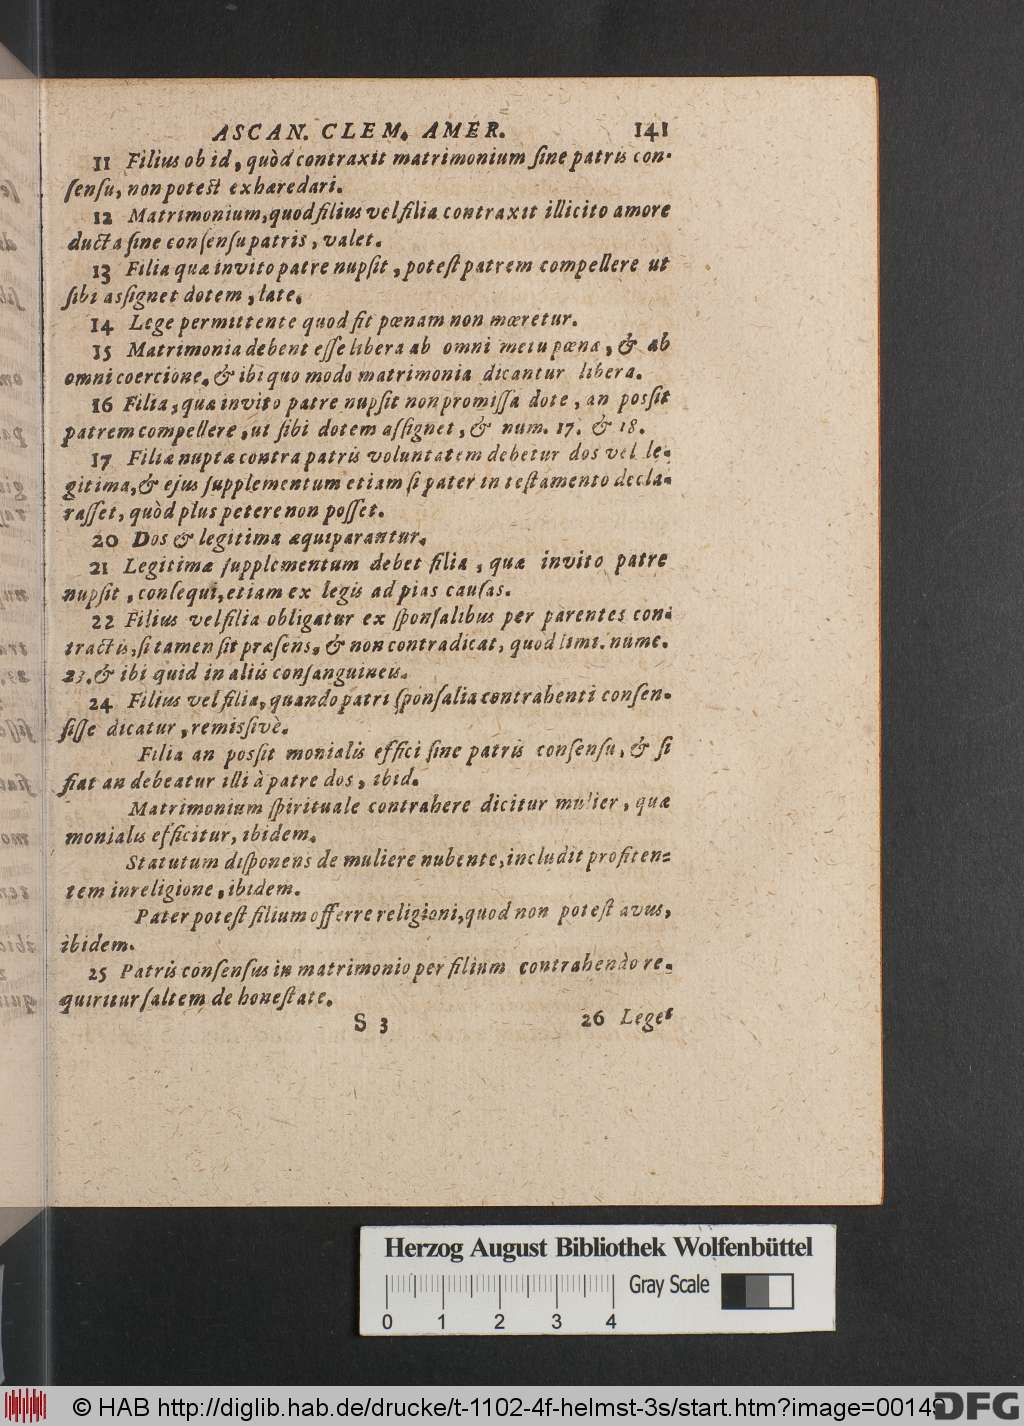 ASCAN. CLEM. AMER. 141
11 Filius ob id, quòd contraxit matrimonium ſine patris con-
ſenſu, non poteſt exhæredari.
12 Matrimonium, quod filius vel filia contraxit illicito amore
ducta ſine conſenſu patris, valet.
13 Filia quæ invito patre nupſit, poteſt patrem compellere ut
ſibi aſſignet dotem, late.
14 Lege permittente quod fit pœnam non mœretur.
15 Matrimonia debent eſſe libera ab omni metu pœna, & ab
omni coercione, & ibi quo modo matrimonia dicantur libera.
16 Filia, quæ invito patre nupſit non promiſſa dote, an poſſit
patrem compellere, ut ſibi dotem aſſignet, & num. 17. & 18.
17 Filiæ nuptæ contra patris voluntatem debetur dos vel le-
gitima, & ejus ſupplementum etiam ſi pater in teſtamento decla-
raſſet, quòd plus petere non poſſet.
20 Dos & legitima æquiparantur.
21 Legitimæ ſupplementum debet filia, quæ invito patre
nupſit, conſequi, etiam ex legis ad pias cauſas.
22 Filius vel filia obligatur ex ſponſalibus per parentes con-
tractis, ſi tamen ſit præſens, & non contradicat, quod limi. nume.
23. & ibi quid in aliis conſanguineis.
24 Filius vel filia, quando patri ſponſalia contrahenti conſen-
ſiſſe dicatur, remiſſivè.
Filia an poſſit monialis effici ſine patris conſenſu, & ſi
fiat an debeatur illi à patre dos, ibid.
Matrimonium ſpirituale contrahere dicitur mulier, quæ
monialis efficitur, ibidem.
Statutum diſponens de muliere nubente, includit profiten-
tem in religione, ibidem.
Pater poteſt filium offerre religioni, quod non poteſt avus,
ibidem.
25 Patris conſenſus in matrimonio per filium contrahendo re-
quiritur ſaltem de honeſtate.
S 3 26 Leges
Herzog August Bibliothek Wolfenbüttel
Gray Scale
0 1 2 3 4
© HAB http://diglib.hab.de/drucke/t-1102-4f-helmst-3s/start.htm?image=00149
DFG